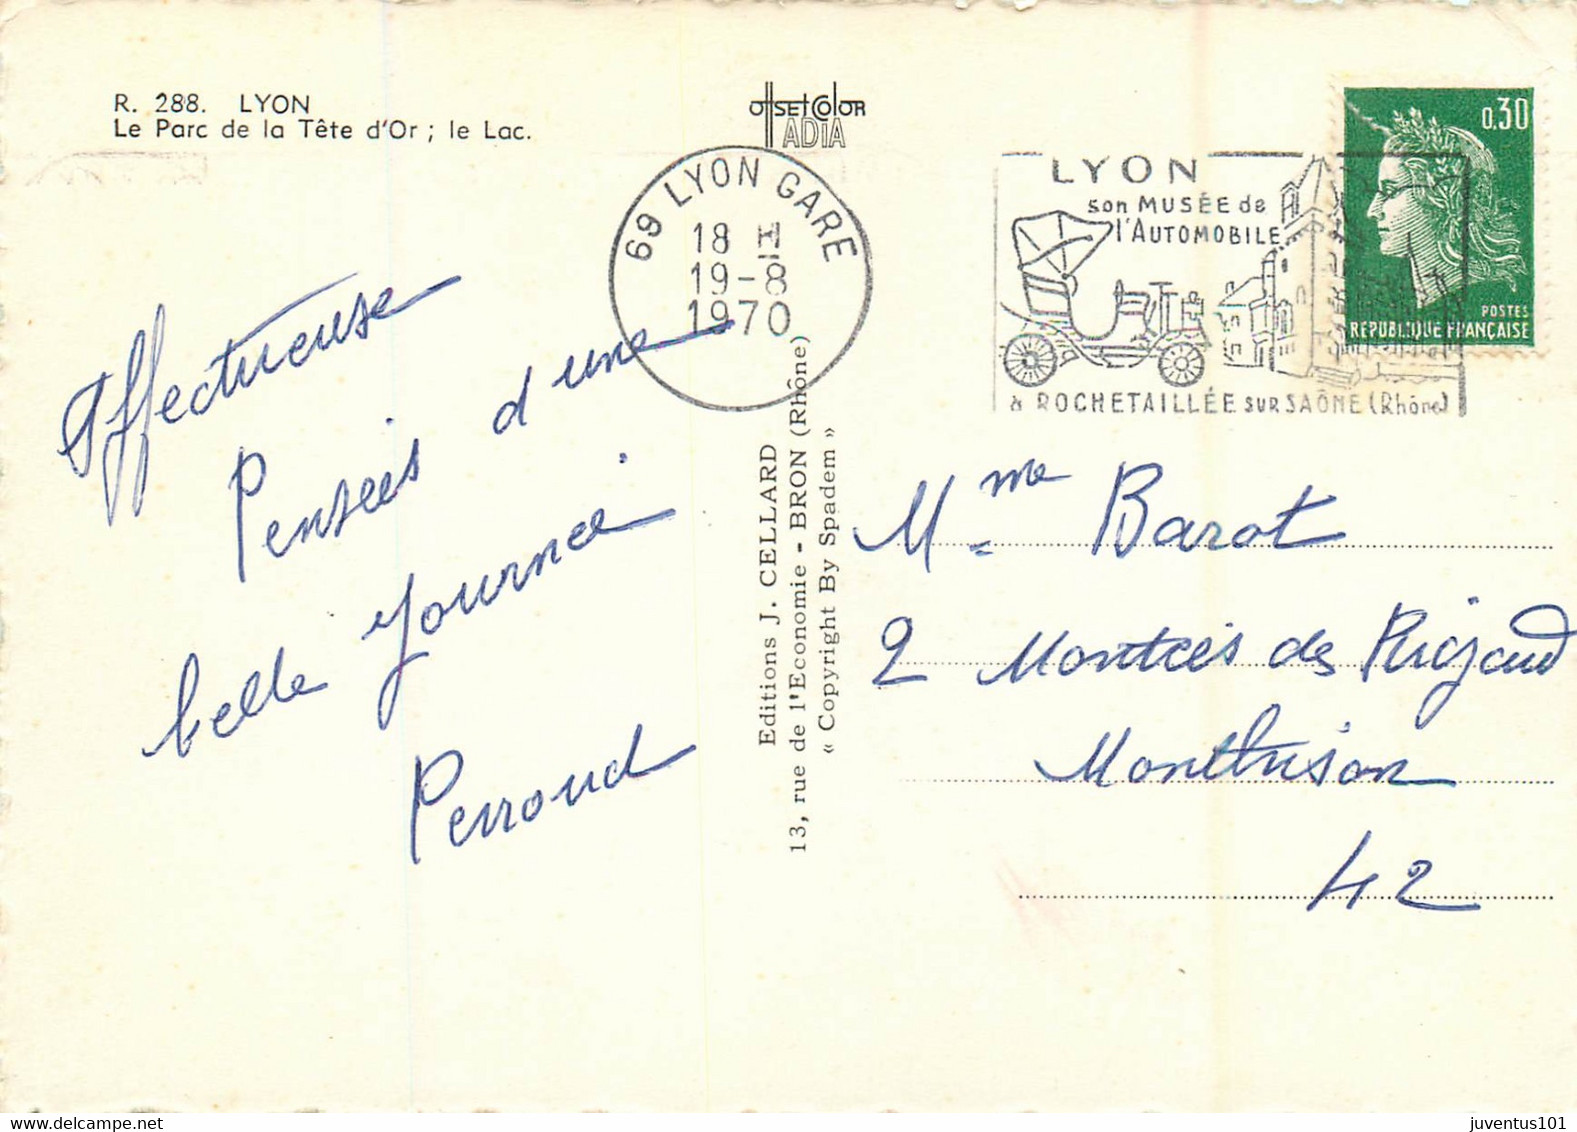 R. 288. LYON
Le Parc de la Tête d'Or ; le Lac.
OffSET Color
ADIA
69 LYON GARE
18 H
19-8
1970
LYON
son MUSÉE de
l'AUTOMOBILE
à ROCHETAILLÉE SUR SAÔNE (Rhône)
0,30
POSTES
REPUBLIQUE FRANÇAISE
Affectueuse
Pensées d'une
belle journée
Perroud
Editions J. CELLARD
13, rue de l'Economie - BRON (Rhône)
« Copyright By Spadem »
Mme Barot
2 Montées des Rigaud
Montbrison
42
juventus101